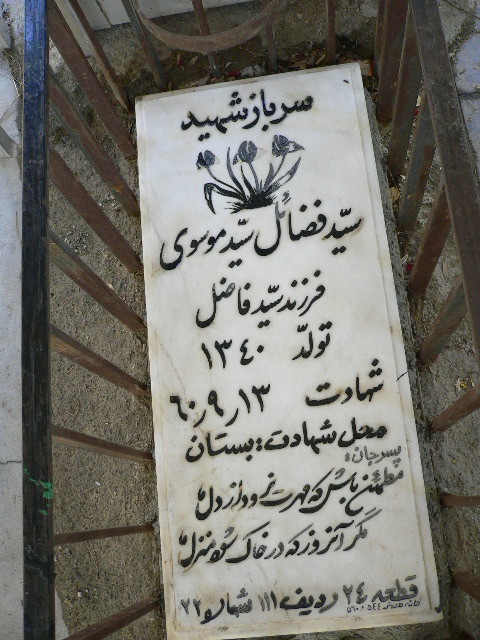 سرباز شهید
سیّد فضائل سیّد موسوی
فرزند سیّد فاضل
تولّد ۱۳۴۰
شهادت ۶۰٫۹٫۱۳
محل شهادت: بستان
پسر جان:
مطمئن باش که مهرت نرود از دل ما
مگر آنروز که در خاک شود منزل ما
قطعه ۲۴ ردیف ۱۱۱ شماره ۲۲